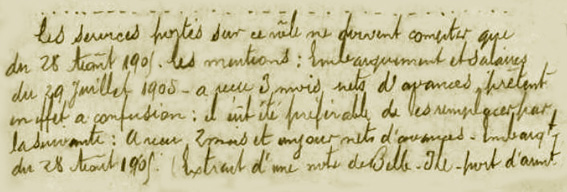 Les services portés sur ce rôle ne doivent compter que
du 28 Août 1905. Les mentions : Embarquement et salaires
du 29 Juillet 1905 - a reçu 3 mois nets d'avances, prêtent
en effet a confusion : il eut été préférable de les remplacer par
la suivante : A reçu 2 mois et un jour nets d'avances - Embarqt
du 28 Août 1905. (Extrait d'une note de Belle-Ile - port d'armt